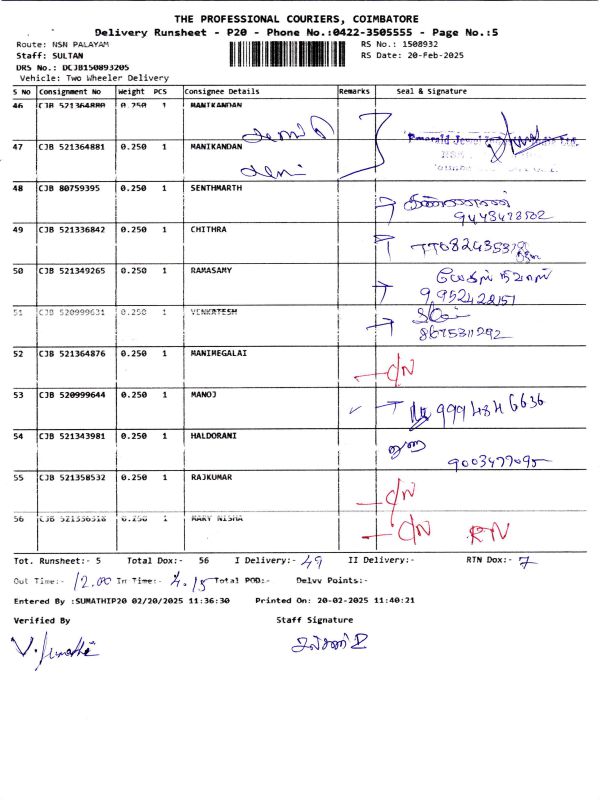 THE PROFESSIONAL COURIERS, COIMBATORE
Delivery Runsheet - P20 - Phone No.:0422-3505555 - Page No.:5
Route: NSN PALAYAM RS No.: 1508932
Staff: SULTAN RS Date: 20-Feb-2025
DRS No.: DCJB150893205
Vehicle: Two Wheeler Delivery
S No Consignment No Weight PCS Consignee Details Remarks Seal & Signature
46 CJB 521364880 0.250 1 MANIKANDAN
47 CJB 521364881 0.250 1 MANIKANDAN
48 CJB 80759395 0.250 1 SENTHMARTH
9443473502
49 CJB 521336842 0.250 1 CHITHRA
50 CJB 521349265 0.250 1 RAMASAMY
9952422157
51 CJB 520999631 0.250 1 VENKATESH
8675311292
52 CJB 521364876 0.250 1 MANIMEGALAI
C/N
53 CJB 520999644 0.250 1 MANOJ
9994846636
54 CJB 521343981 0.250 1 HALDORANI
9003477095
55 CJB 521358532 0.250 1 RAJKUMAR
C/N
56 CJB 521336318 0.250 1 MARY NISHA
C/N RTN
Tot. Runsheet:- 5 Total Dox:- 56 I Delivery:- 49 II Delivery:- RTN Dox:- 7
Out Time:- 12.00 In Time:- 4.15 Total POD:- Delvv Points:-
Entered By :SUMATHIP20 02/20/2025 11:36:30 Printed On: 20-02-2025 11:40:21
Verified By Staff Signature
V. Sumathi